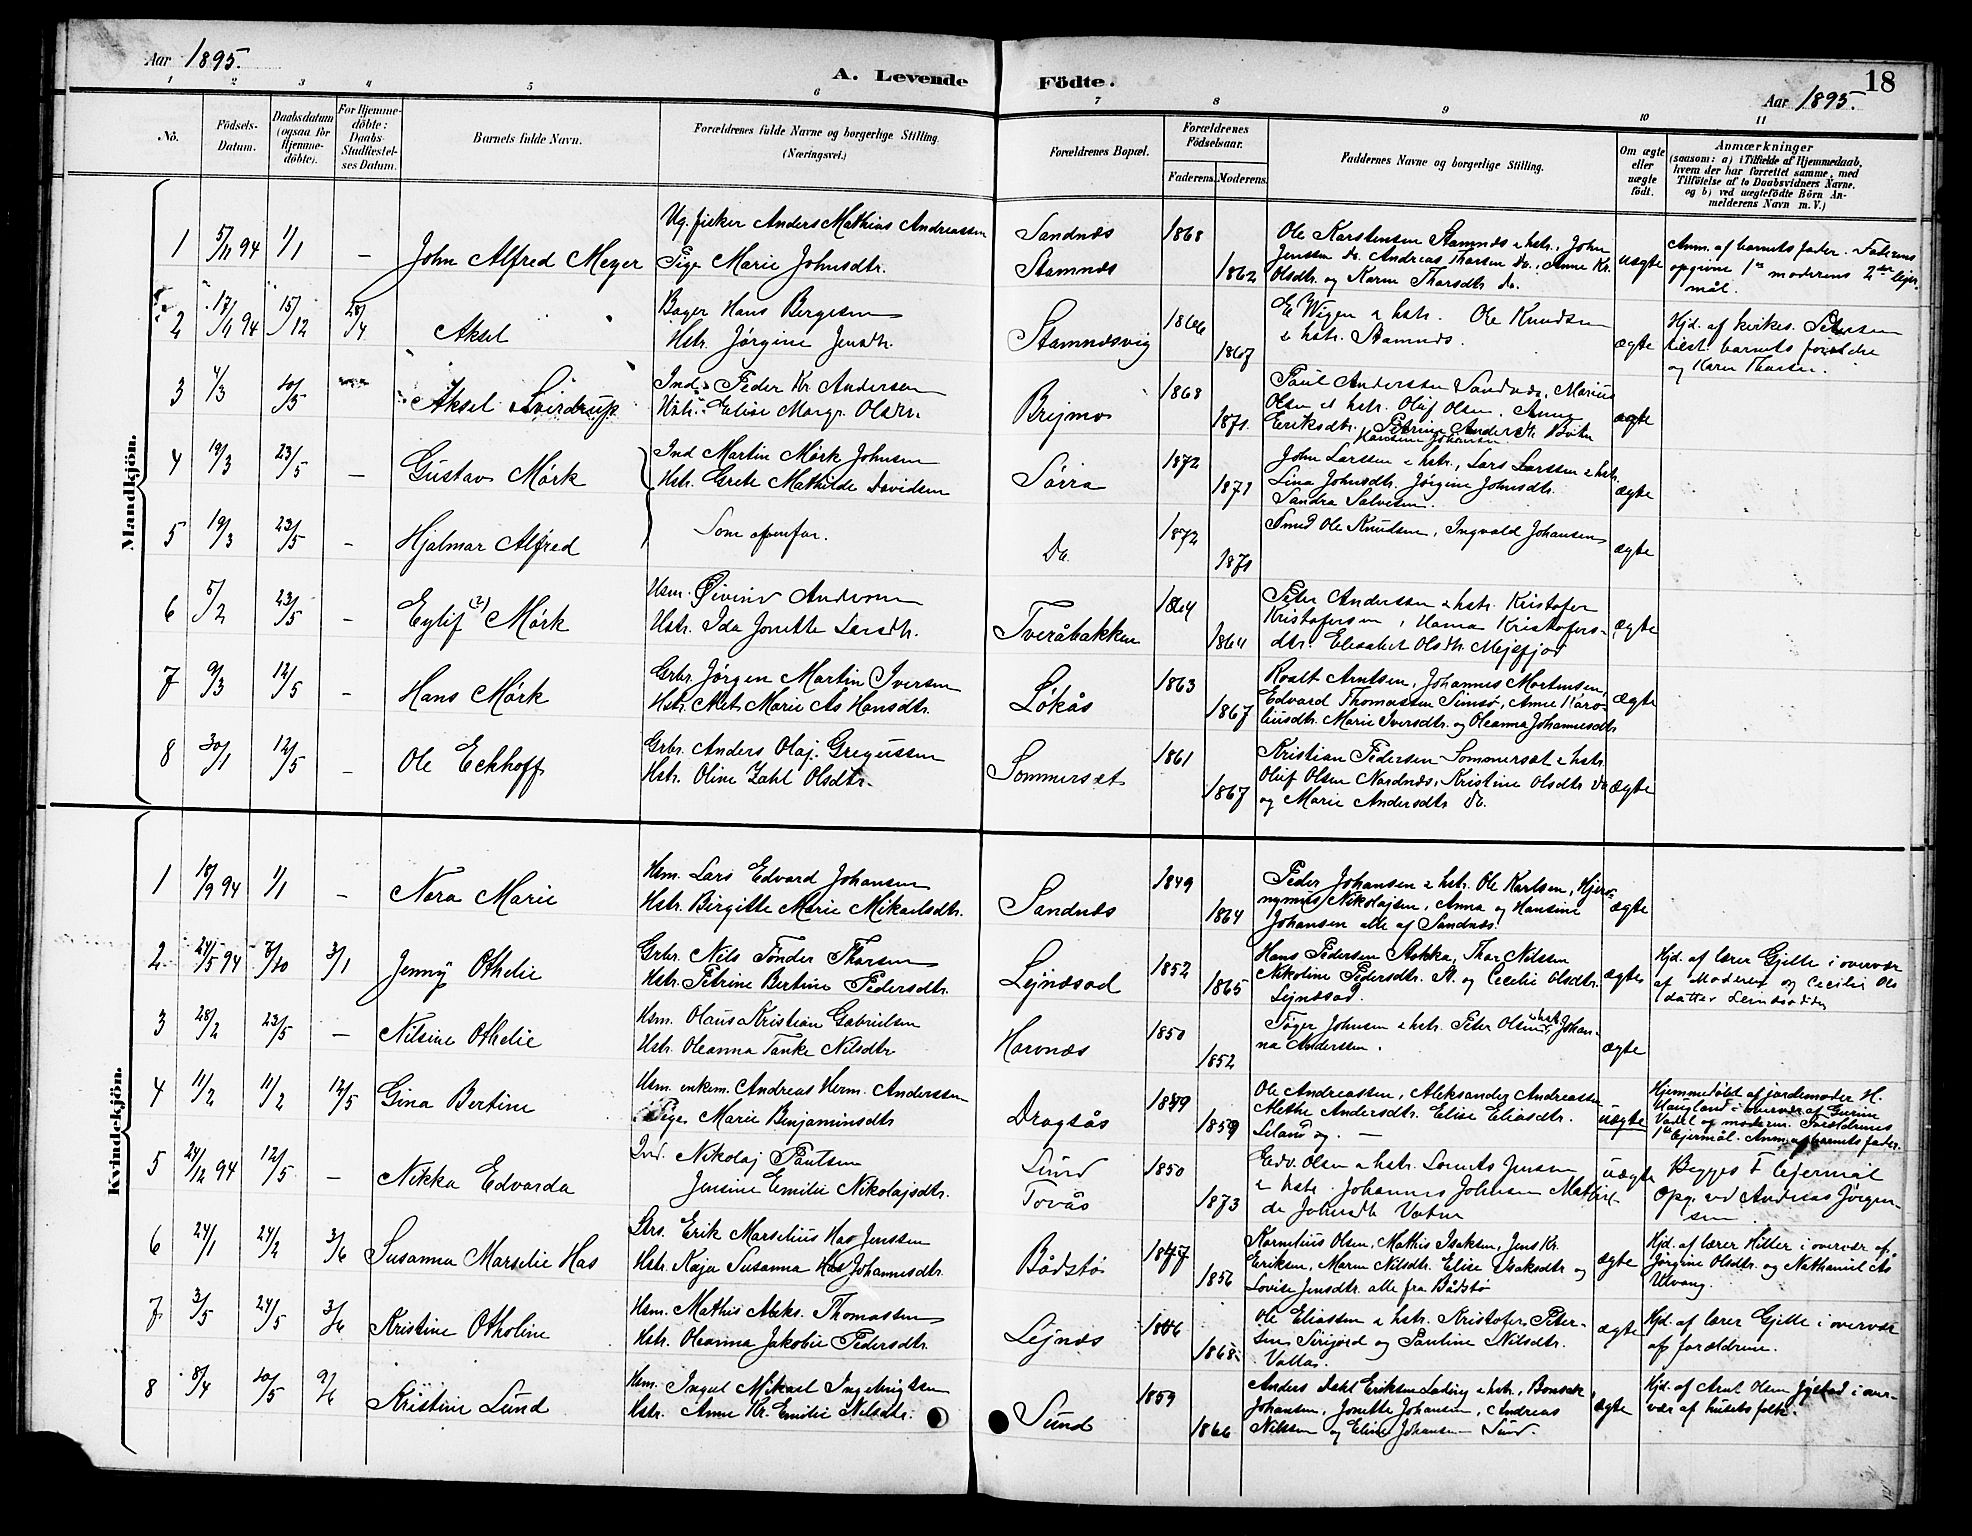 Aar 1895.
A. Levende Födte.
18
Aar 1895.
1 2 3 4 5 6 7 8 9 10 11
No.
Födsels-Datum.
Daabsdatum (ogsaa for Hjemme-döbte).
For Hjemme-döbte: Daabs Stadfæstel-ses Datum.
Barnets fulde Navn.
Forældrenes fulde Navne og borgerlige Stilling.
(Næringsvei.)
Forældrenes Bopæl.
Forældrenes Födselsaar.
Faderens. Moderens.
Faddernes Navne og borgerlige Stilling.
Om ægte eller uægte födt.
Anmærkninger
(saasom: a) i Tilfælde af Hjemmedaab,
hvem der har forrettet samme, med
Tilföielse af to Daabsvidners Navne.
og b) ved uægtefödte Börn An-
melderens Navn m. V.)
Mandkjön.
1 5/11 94 1/1 — John Alfred Meyer
Ug. fisker Anders Mathias Andreassen
Pige Marie Johnsdtr.
Sandnæs
Stamnæs
1868
1862
Ole Karstensen Stamnæs & hstr., John
Jenssen do. Andreas Tharsen do., Anne Kr.
Olsdtr. og Karen Tharsdtr. do.
uægte
Anm. af barnets fader. Faderens
opgivne 1ste moderens 2det leier-
mål.
2 17/9 94 15/12 28/4 Aksel
Bager Hans Bergesen
Hstr. Jørgine Jensdtr.
Stamnæsvig
1866
1867
E. Wigen & hstr. Ole Knudsen
& hstr. Stamnæs.
ægte
Hjd. af kirkes. Petersen
tilst. barnets forældre
og Karen Tharsen.
3 4/3 20/5 Aksel Sverdrup
Ind. Peder Kr. Andersen
Hstr. Elise Margr. Olsdtr.
Brejmo
1868
1871.
Paul Anderssen Sandnæs, Marius
Olsen & hstr. Oluf Olsen, Anna
Eriksdtr. Petrine Andersdtr.
Hansine Johansen
ægte
4 19/3 23/5 — Gustav Mörk
Ind Martin Mörk Johnsen
Hstr. Grete Mathilde Davidsen
Sörra
1872
1871
John Larssen & hstr., Lars Larssen & hstr.
Lina Johnsdtr. Jørgine Johnsdtr.
Sandra Salvesen.
ægte
5 19/3 23/5 — Hjalmar Alfred
Som ovenfor.
Do.
1872
1871
Smed Ole Knudsen, Ingvald Johansen
ægte
6 5/2 23/5 — Eylif (?) Mörk
Hsm. Øivind Andersen
Hstr. Ida Jonette Larsdtr.
Tveråbakken
1864
1864
Peter Anderssen & hstr. Kristofer
Kristofersen, Hanna Kristofers-
dtr. Elisabet Olsdtr. Mejefjord
ægte
7 9/3 12/5 — Hans Mörk
Grbr. Jørgen Martin Iversen
Hstr. Met. Marie As Hansdtr.
Løkås
1863
1867
Roalt Arntsen, Johannes Mortensen,
Edvard Thomassen Simsø, Anne Karo-
liusdtr. Marie Iversdtr. og Oleanna Johannesdtr.
ægte
8 30/1 12/5 — Ole Eckhoff
Grbr. Anders Olaj. Gregussen
Hstr. Oline Zahl Olsdtr.
Sommerset
1861
1867
Kristian Pedersen Sommerset & hstr.
Oluf Olsen Nordnæs, Kristine Olsdtr. do
og Marie Andersdtr. do.
ægte
Kvindekjön.
1 18/9 94 1/1 — Nora Marie
Hsm. Lars Edvard Johansen
Hstr. Birgitte Marie Mikaelsdtr.
Sandnæs
1849
1864
Peder Johansen & hstr. Ole Karlsen, Hjero-
nymus Nikolajsen, Anna og Hansine
Johansen alle af Sandnæs
ægte
2 24/5 94 7/10 3/1 Jenny Othelie
Grbr. Nils Tönder Tharsen
Hstr. Petrine Bertine Pedersdtr.
Lejnæsod
1852
1865
Hans Pedersen Stokka, Thor Nilssen
Nikoline Pedersdtr. St. og Cecilie Olsdtr.
Lejnæsod.
ægte
Hjd. af lærer Gjelle i overvær
af Moderen og Cecilie Ols
datter Leinæsodden
3 28/2 23/5 — Nilsine Othelie
Hsm. Olaus Kristian Gabrielsen
Hstr. Oleanna Tanke Nilsdtr.
Havnæs
1850
1852
Töger Johnsen & hstr. Peter Olsen & hstr. Johan-
na Anderssen.
ægte
4 11/2 11/2 12/5 Gina Bertine
Hsm. enkem. Andreas Herm. Anderssen
Pige Marie Benjaminsdtr.
Dragsås
1849
1859
Ole Andreassen, Aleksander Andreassen
Methe Andersdtr. Elise Eliasdtr.
Leland og. —
uægte
Hjemmedöbt af jordemoder H.
Haugland i overvær af Gurine
Vadel og moderen. Forældrenes
1ste lejermål. Anm. af barnets fader.
5 24/12 94 12/5 — Nikka Edvarda
Ind. Nikolaj Paulsen
Jensine Emilie Nikolajsdtr.
Sund
Tovås
1850
1873
Edv. Olsen & hstr. Lorents Jensen
& hstr. Johannes Johnsen Mathil-
de Johnsdtr. Vatne
uægte
Begges 1 lejermål
Opg. ved Andreas Jörgen-
sen.
6 24/1 24/2 3/6 Susanna Marselie Has
Strs. Erik Marselius Has Jenssen
Hstr. Kaja Susanna Has Johannesdtr.
Bådstø
1847
1856
Kornelius Olsen, Mathis Isaksen, Jens Kr.
Eriksen, Maren Nilsdtr. Elise Isaksdtr. og
Lovise Jensdtr. alle fra Bådstø
ægte
Hjd. af lærer Hiller i overvær af
Jørgine Olsdtr. og Nathaniel As
Ulvang.
7 3/5 24/5 3/6 Kristine Otholine
Hsm. Mathis Aleks. Thomassen
Hstr. Oleanna Jakobie Pedersdtr.
Lejnæs
1866
1868
Ole Eliassen & hstr. Kristofer Peter-
sen Serijord og Pauline Nilsdtr.
Valla.
ægte
Hjd. af lærer Gjelle i overvær
af forældrene.
8 8/4 20/5 9/6 Kristine Lund
Hsm. Ingel Mikael Ingebrigtsen
Hstr. Anne Kr. Emilie Nilsdtr.
Sund
1859
1866
Anders Dahl Eriksen & hstr., Bonsak
Johansen, Jonette Johansen, Andreas
Nilssen og Eline Johansen Sund.
ægte
Hjd. af Arnt Olsen i over-
vær af husets folk.